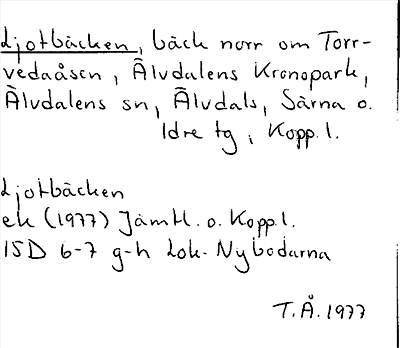 Ljotbäcken, bäck norr om Torr-
vedaåsen, Älvdalens Kronopark,
Älvdalens sn, Älvdals, Särna o.
Idre tg, Kopp. l.
Ljotbäcken
ek (1977) Jämtl. o. Kopp. l.
15D 6-7 g-h Lok. Nybodarna
T.Å. 1977